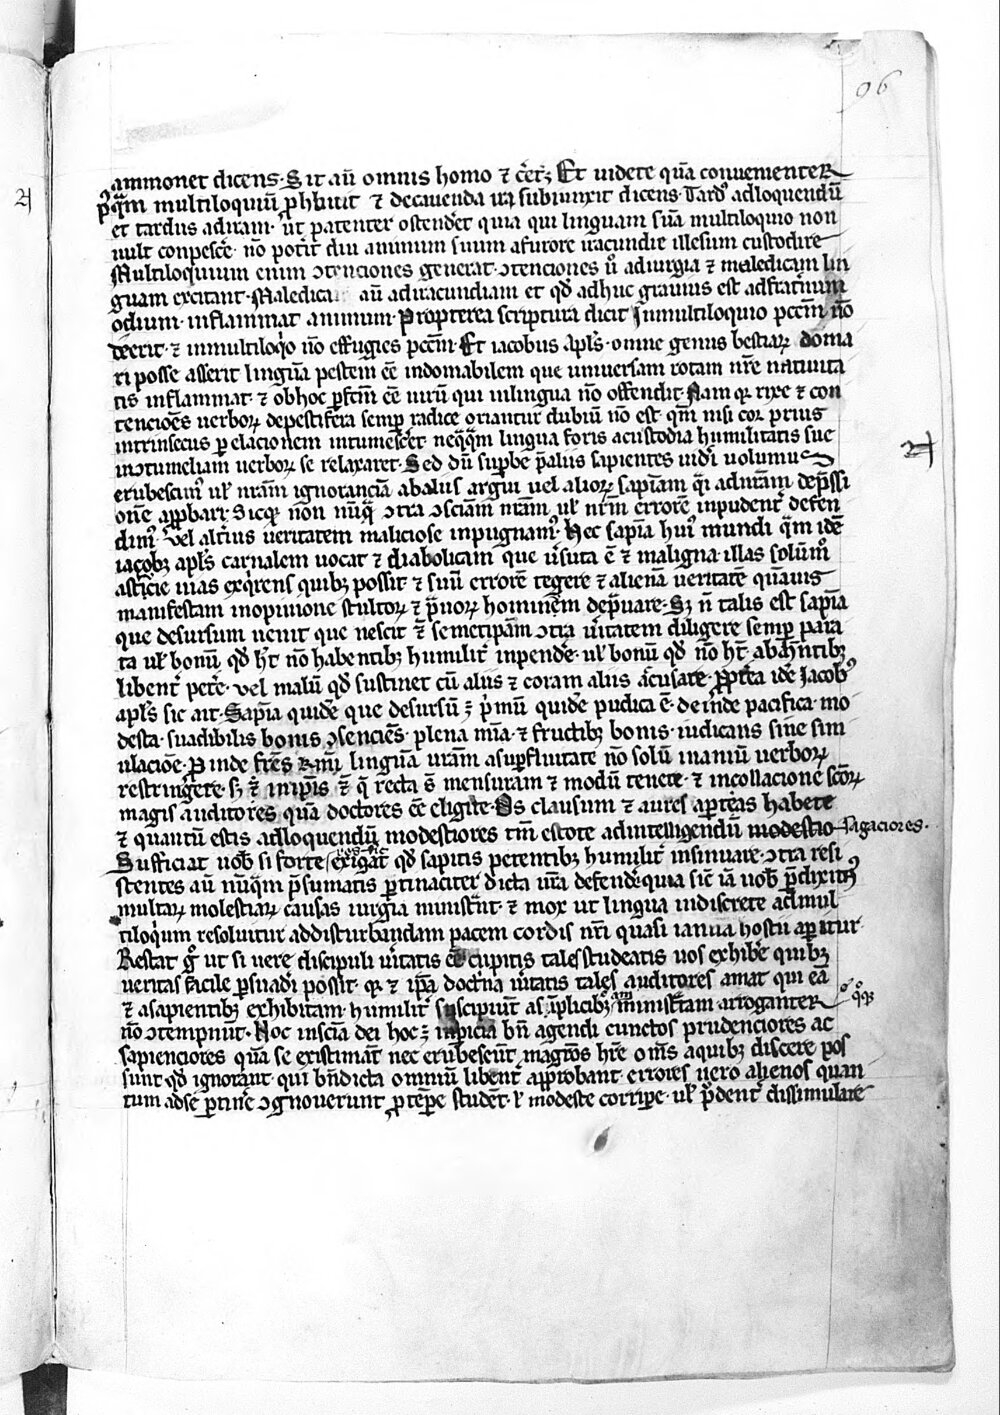 96
ammonet dicens. Sit aū omnis homo ⁊ cet̄ꝫ Et uidete qͣm conuenienter
pꝰqͣm multiloquiū ꝓhibuit ⁊ decauenda ira subiunxit dicens. Tardꝰ adloquendū
et tardus adiram. ut patenter ostenderet quia qui linguam suā multiloquio non
uult conpescere. nō poterit diu animum suum afurore iracundie illesum custodire
Multiloquium enim ↄtenciones generat. ↄtenciones ū adiurgia ⁊ maledicam lin
guam excitant. Maledica aū adiracundiam et qd adhuc grauius est adfrat̄num
odium inflammat animum. Propterea scriptura dicit Inmultiloquio pccm̄ nō
deerit. ⁊ inmultiloqͦo nō effugies pccm̄. Et iacobus apls̄. omne genus bestiaꝝ doma
ri posse asserit linguā pestem eē indomabilem que uniuersam rotam nr̄e natiuita
tis inflammat. ⁊ obhoc ꝑfcm̄ eē uirū qui inlingua nō offendit. Nam qꝛ rixe ⁊ con
tencioēs uerboꝝ depestifera semꝑ radice oriantur dubiū nō est. qm̄ nisi cor prius
intrinsecus ꝑ elacionem intumesceret neqͣqͣm lingua foris acustodia humilitatis sue
inↄtumeliam uerboꝝ se relaxaret. Sed dū suꝑbe p̄ aliis sapientes uideri uolumus
erubescimꝰ ul' nr̄am ignoranciā abaliis argui uel alioꝝ sapiam q̄i adnr̄am dep̄ssi
onē apꝓbari. Sicqꝫ non nūqͣ ↄtra ↄsciam nr̄am ul' nr̄m errorē inpudenter defen
dimꝰ. Vel alterius ueritatem maliciose inpugnamꝰ. Hec sapīa huiꝰ mundi qͣm idē
iacobꝫ apls̄ carnalem uocat ⁊ diabolicam que ūsuta ē ⁊ maligna illas solūmꝰ
asticie uias exqͥrens quibꝫ possit ⁊ suū errorē tegere ⁊ alienā ueritatē quāuis
manifestam inopinione stultoꝝ ⁊ prauoꝝ hominem deprauare. Sꝫ n̄ talis est sapīa
que desursum uenit que nescit ⁊ semetipam ↄtra ūitatem diligere semꝑ para
ta ul' bonū qd h't nō habentibꝫ humiliter inpendere. ul' bonū qd nō h't abhn̄tibꝫ
libenter petere. Vel malū qd sustinet cū aliis ⁊ coram aliis accusare. ꝓpterea idē Iacobꝰ
apls̄ sic ait. Sapīa quidē que desursū ꝫ primū quidē pudica ē. deinde pacifica mo
desta. suadibilis bonis ↄsenciens. plena mīa. ⁊ fructibꝫ bonis. iudicans sine sim
ulacione. Proinde fr̄es kmī linguā ur̄am asuꝑfluitate nō solū inaniū uerboꝝ
restringere. sꝫ
magis auditores quā doctores eē eligite. Os clausum ⁊ aures aꝑtas habete
⁊ quantū estis adloquendū modestiores tm̄ estote adintelligendū modestio sagaciores.
Sufficiat uob̄ si forte res sic exigat qd sapitis petentibꝫ humiliter insinuare. ↄtra resi
stentes aū nūqͣm p̄sumatis ꝑtinaciter dicta ur̄a defendere quia sic̄ iā uob̄ p̄diximꝰ
multaꝝ molestiaꝝ causas iurgia ministrant. ⁊ mox ut lingua indiscrete admul
tiloqͥum resoluitur addisturbandam pacem cordis nr̄i quasi ianua hosti aꝑitur.
Restat g̊ ut si uere discipuli ūitatis eē cupitis tales studeatis uos exhibere quibꝫ
ueritas facile ꝑsuaderi possit. qꝛ ⁊ ipa doctrina ūitatis tales auditores amat qui eā
⁊ asapientibꝫ exhibitam humiliter suscipiunt as implicibꝫ ministratam arroganter
nō ↄtempnunt. Hoc
sapienciores quā se existimant nec erubescunt magros hr̄e om̄s aquibꝫ discere pos
sunt qd ignorant. qui bn̄dicta omniū libenter apꝓbant. errores uero alienos quan
tum adse ꝑtinere ↄgnouerunt modeste corriꝑe. ul' prudenter dissimulare